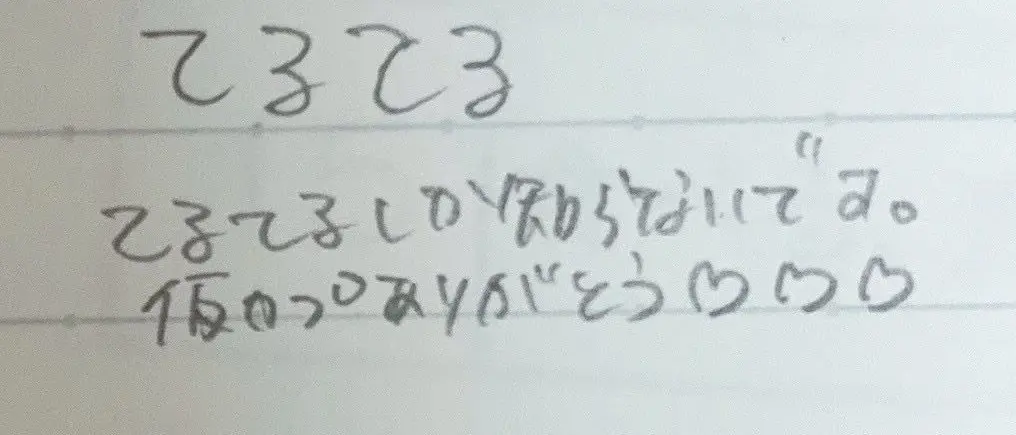 てるてる
てるてるしか知らないです。
ありがとう♡♡♡